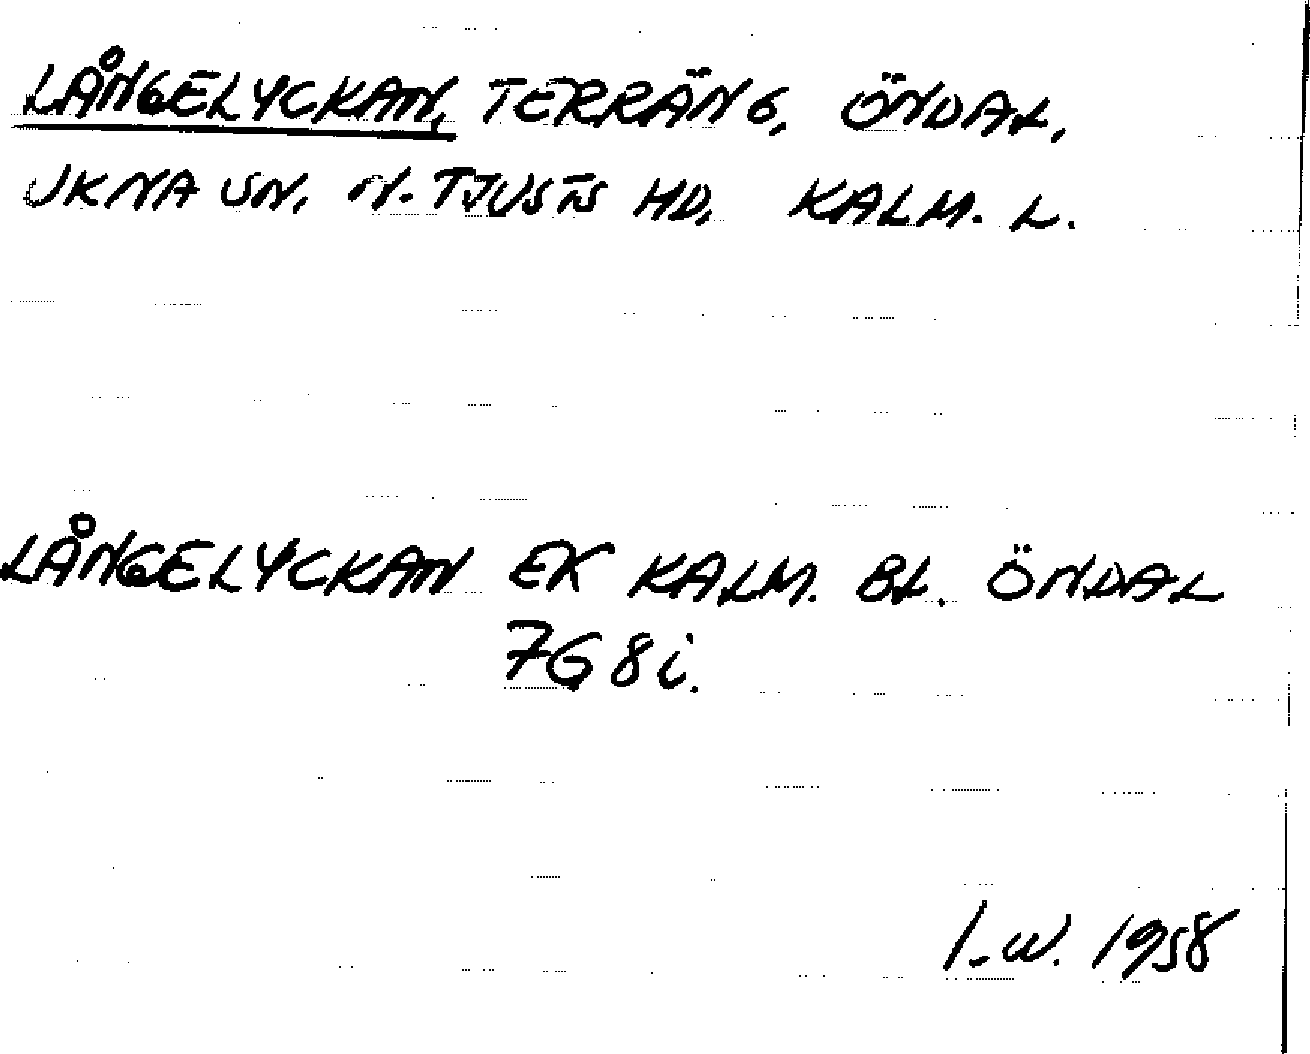 LÅNGELYCKAN, TERRÄNG, ÖNDAL,
UKNA SN. N. TJUSTS HD, KALM. L.
LÅNGELYCKAN EK KALM. BL. ÖNDAL
7G 8i.
I.W. 1958